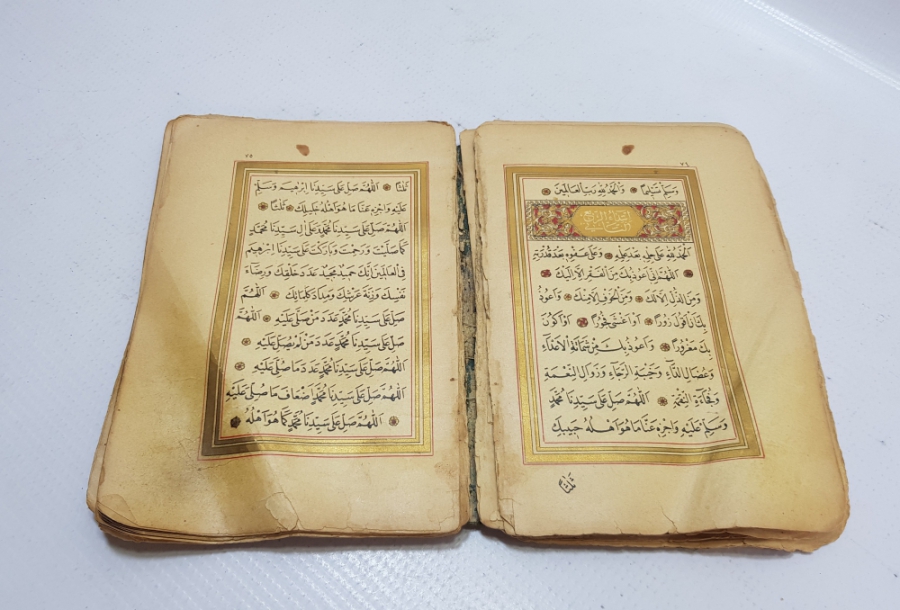 ٧٤
وسلم تسليما والحمد لله رب العالمين
ابتداء الربع
الحمد لله على حلمه بعد علمه وعلى عفوه بعد قدرته
اللهم انى اعوذ بك من الفقر الا اليك
ومن الذل الا لك ومن الخوف الا منك واعوذ
بك ان اقول زورا او اغشى فجورا او اكون
بك مغرورا واعوذ بك من شماتة الاعداء
وعضال الداء وخيبة الرجاء وزوال النعمة
وفجاءة النقمة اللهم صل على سيدنا محمد
وسلم عليه واجزه عنا ما هو اهله حبيبك
ثلثا
٧٥
ثلثا اللهم صل على سيدنا ابرهيم وسلم
عليه واجزه عنا ما هو اهله خليلك ثلثا
اللهم صل على سيدنا محمد وعلى ال سيدنا محمد
كما صليت ورحمت وباركت على سيدنا ابرهيم
فى العالمين انك حميد مجيد عدد خلقك ورضاء
نفسك وزنة عرشك ومداد كلماتك اللهم
صل على سيدنا محمد عدد من صلى عليه اللهم
صل على سيدنا محمد عدد من لم يصل عليه
اللهم صل على سيدنا محمد عدد ما صلى عليه
اللهم صل على سيدنا محمد اضعاف ما صلى عليه
اللهم صل على سيدنا محمد كما هو اهله